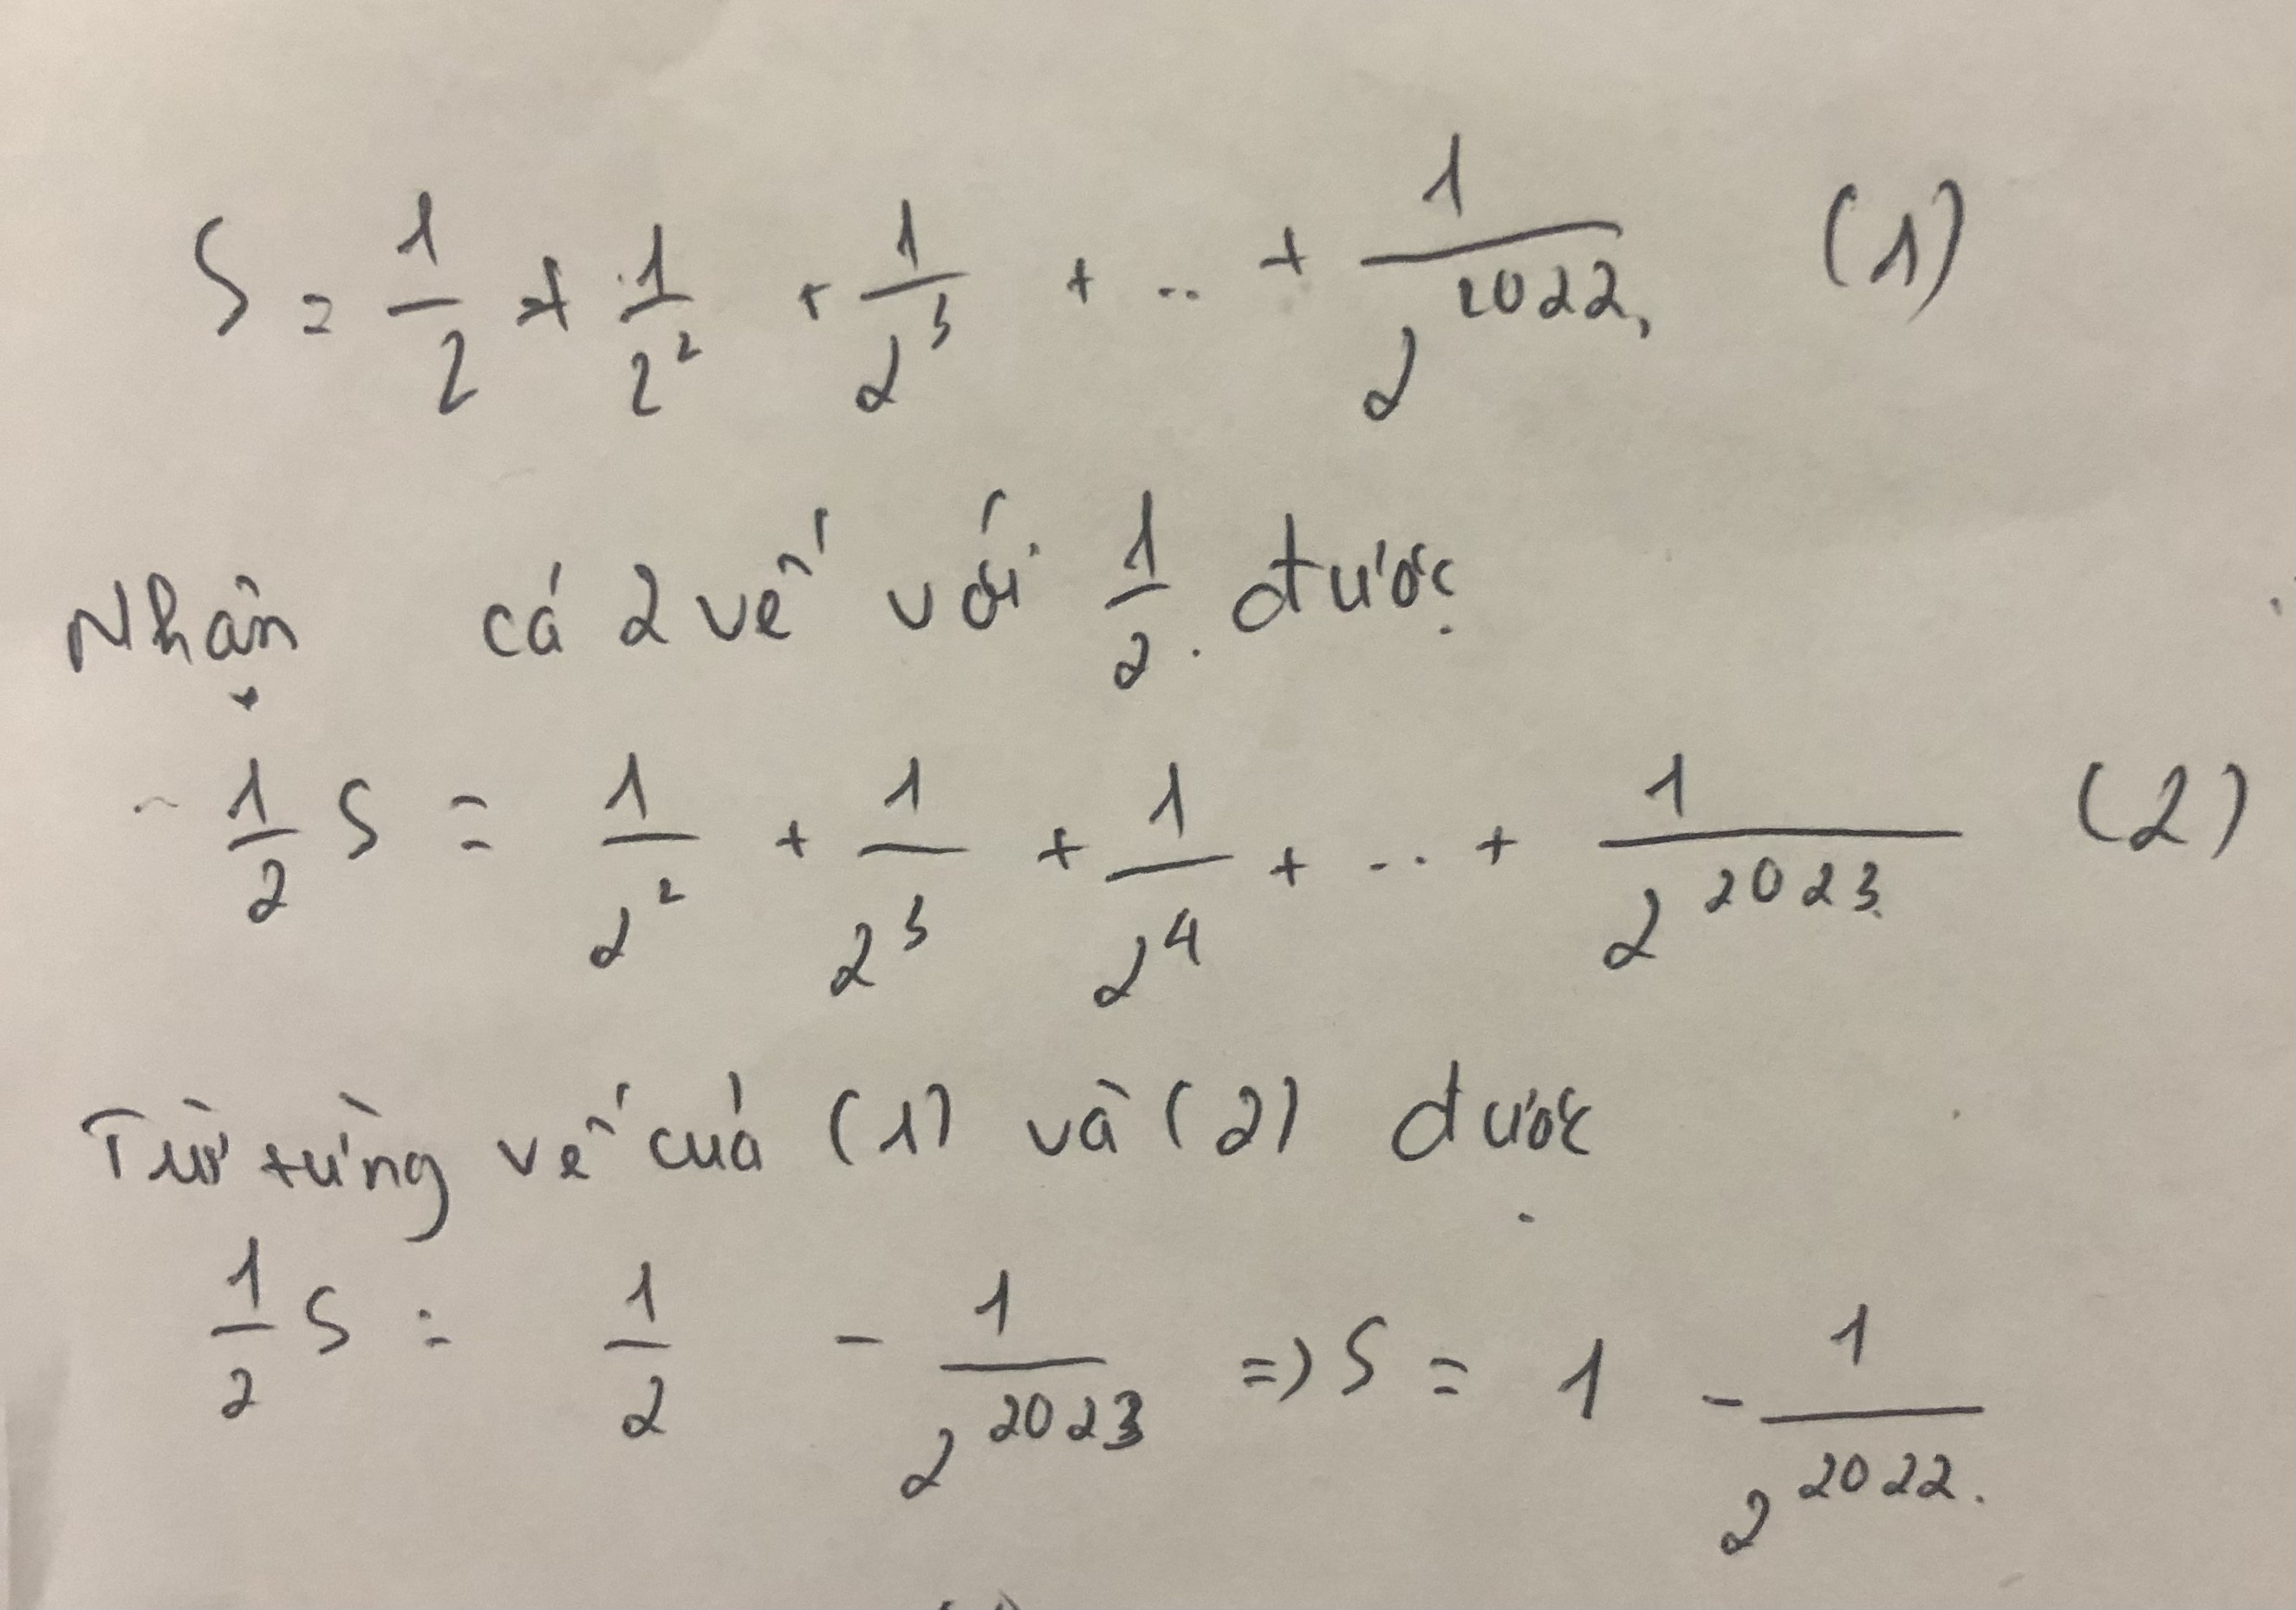 S = 1/2 + 1/2² + 1/2³ + .. + 1/2²⁰²² (1)
Nhận cả 2 vế với 1/2 được
1/2 S = 1/2² + 1/2³ + 1/2⁴ + ... + 1/2²⁰²³ (2)
Từ từng vế của (1) và (2) được
1/2 S = 1/2 - 1/2²⁰²³ => S = 1 - 1/2²⁰²².